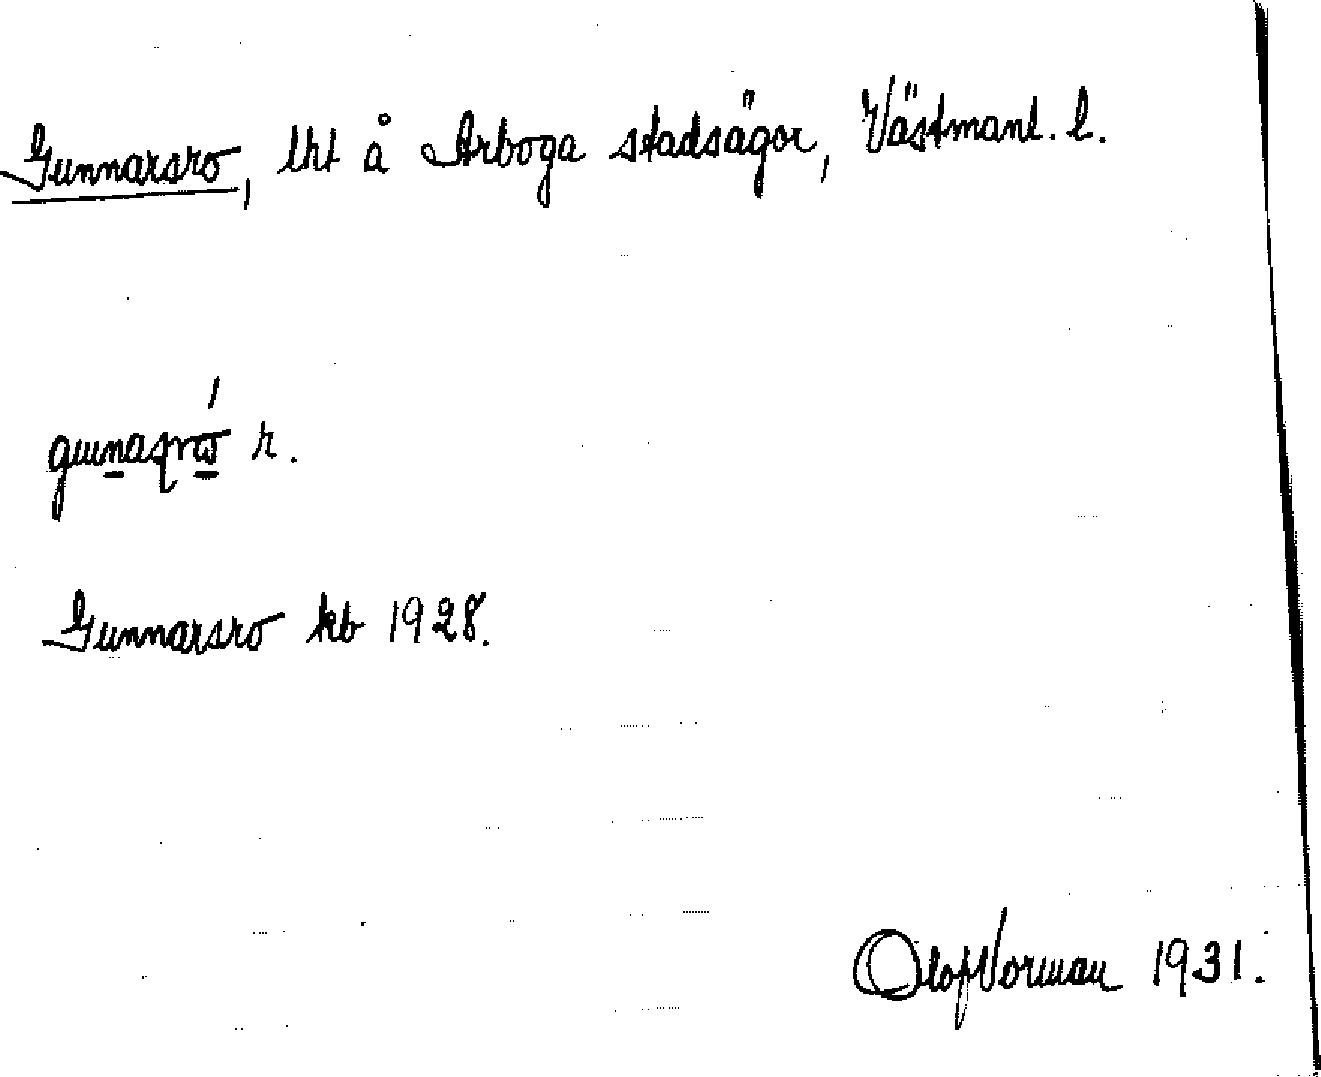 Gunnarsro, lht å Arboga stadsägor, Västmanl. l.
r.
Gunnarsro kb 1928.
Olof Vorman 1931.